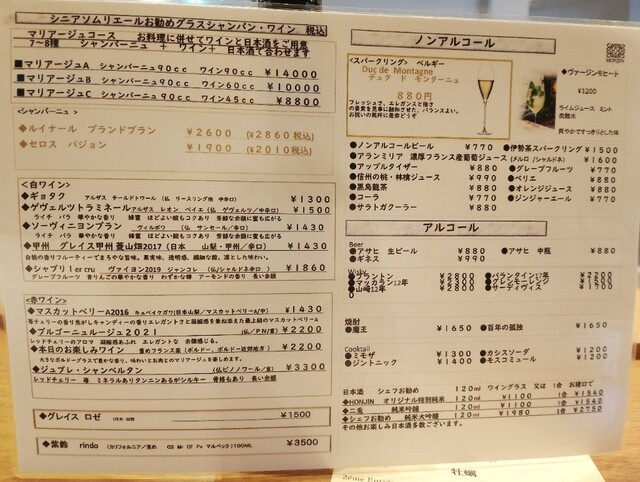 シニアソムリエールお勧めグラスシャンパン・ワイン 税込
マリアージュコース お料理に併せてワインと日本酒をご用意
7～8種 シャンパーニュ ＋ ワイン＋ 日本酒で合わせます
■マリアージュA シャンパーニュ90cc ワイン90cc ¥14000
■マリアージュB シャンパーニュ90cc ワイン60cc ¥10000
■マリアージュC シャンパーニュ90cc ワイン45cc ¥8800
<シャンパーニュ>
◆ルイナール ブランドブラン ¥2600 (¥2860税込)
◆セロス パジョン ¥1900 (¥2010税込)
<白ワイン>
◆ギョタク アルザス テールドトワール(仏 リースリング他 中辛口) ¥1300
◆ゲヴェルツトラミネール アルザス レオン ベイエ (仏 ゲヴェルツ/中辛口) ¥1500
ライチ バラ 華やかな香り 蜂蜜 ほどよい酸もコクあり 芳醇な余韻に蜜も広がる
◆ソーヴィニヨンブラン ヴィルボワ (仏 サンセール/辛口) ¥1430
ライチ バラ 華やかな香り 蜂蜜 ほどよい酸もコクあり 芳醇な余韻に蜜も広がる
◆甲州 グレイス甲州 菱山畑2017(日本 山梨・甲州/辛口) ¥1430
◆シャブリ1er cru ヴァイヨン2019 ジャンコレ (仏/シャルドネ辛口) ¥1860
グレープフルーツ 青りんごの華やかな香り わずかな樽 アーモンドの香り 長い余韻
<赤ワイン>
◆マスカットベリーA2016 キュベイケガワ(日本山梨/マスカットベリーA/中) ¥1430
◆ブルゴーニュルージュ2021 (仏/P.N/重) ¥2200
レッドチェリーのアロマ 凝縮感あふれ エレガントな 余韻感じる。
◆本日のお楽しみワイン 重めフランス産(ボルドー、ボルドー近郊地方) ¥2200
大きなボルドーグラスで豊かな香り、味わいとお肉とのマリアージュを楽しめます。
◆ジュブレ・シャンベルタン (仏ピノノワール/重) ¥3300
レッドチェリー 苺 ミネラルありタンニンあるがシルキー 骨格もあり 長い余韻
◆グレイス ロゼ ¥1500
◆紫鈴 rindo (カリフォルニア/重め CS Mr CF Pv マルベック)100ML ¥3500
ノンアルコール
<スパークリング> ベルギー
Duc de Montagne
デュク ド モンターニュ
880円
フレッシュさ、エレガンスと強さ
の要素を見事に融和させた、バランスよい。
お祝いの乾杯に是非どうぞ
HONJIN
◆ヴァージンモヒート
¥1200
ライムジュース ミント
炭酸水
爽やかですっきりした味
●ノンアルコールビール ¥770 ●伊勢茶スパークリング ¥1500
●アランミリア 濃厚フランス産葡萄ジュース (メルロ/シャルドネ) ¥1600
●アップルタイザー ¥880 ●グレープフルーツ ¥770
●信州の桃・林檎ジュース ¥990 ●ペリエ ¥880
●黒烏龍茶 ¥880 ●オレンジジュース ¥880
●コーラ ¥770 ●ジンジャーエール ¥770
●サラトガクーラー ¥880
アルコール
Beer
●アサヒ 生ビール ¥880 ●アサヒ 中瓶 ¥880
●ギネス ¥990
●ブラントン
●マッカラン12年
●山崎12年
焼酎
●魔王 ¥1650 ●百年の孤独 ¥1650
Cocktail
●ミモザ ¥1300 ●カシスソーダ ¥1200
●ジントニック ¥1400 ●モスコミュール ¥1200
日本酒 シェフお勧め 120ml ワイングラス 又は 1合 お猪口で
◆HONJIN オリジナル特別純米 120ml ¥1100 1合 ¥1540
◆二兎 純米吟醸 120ml ¥1100 1合 ¥1540
◆シェフお勧め 純米大吟醸 120ml ¥1980 1合 ¥2750
その他お楽しみ日本酒多数ございます。
牡蠣